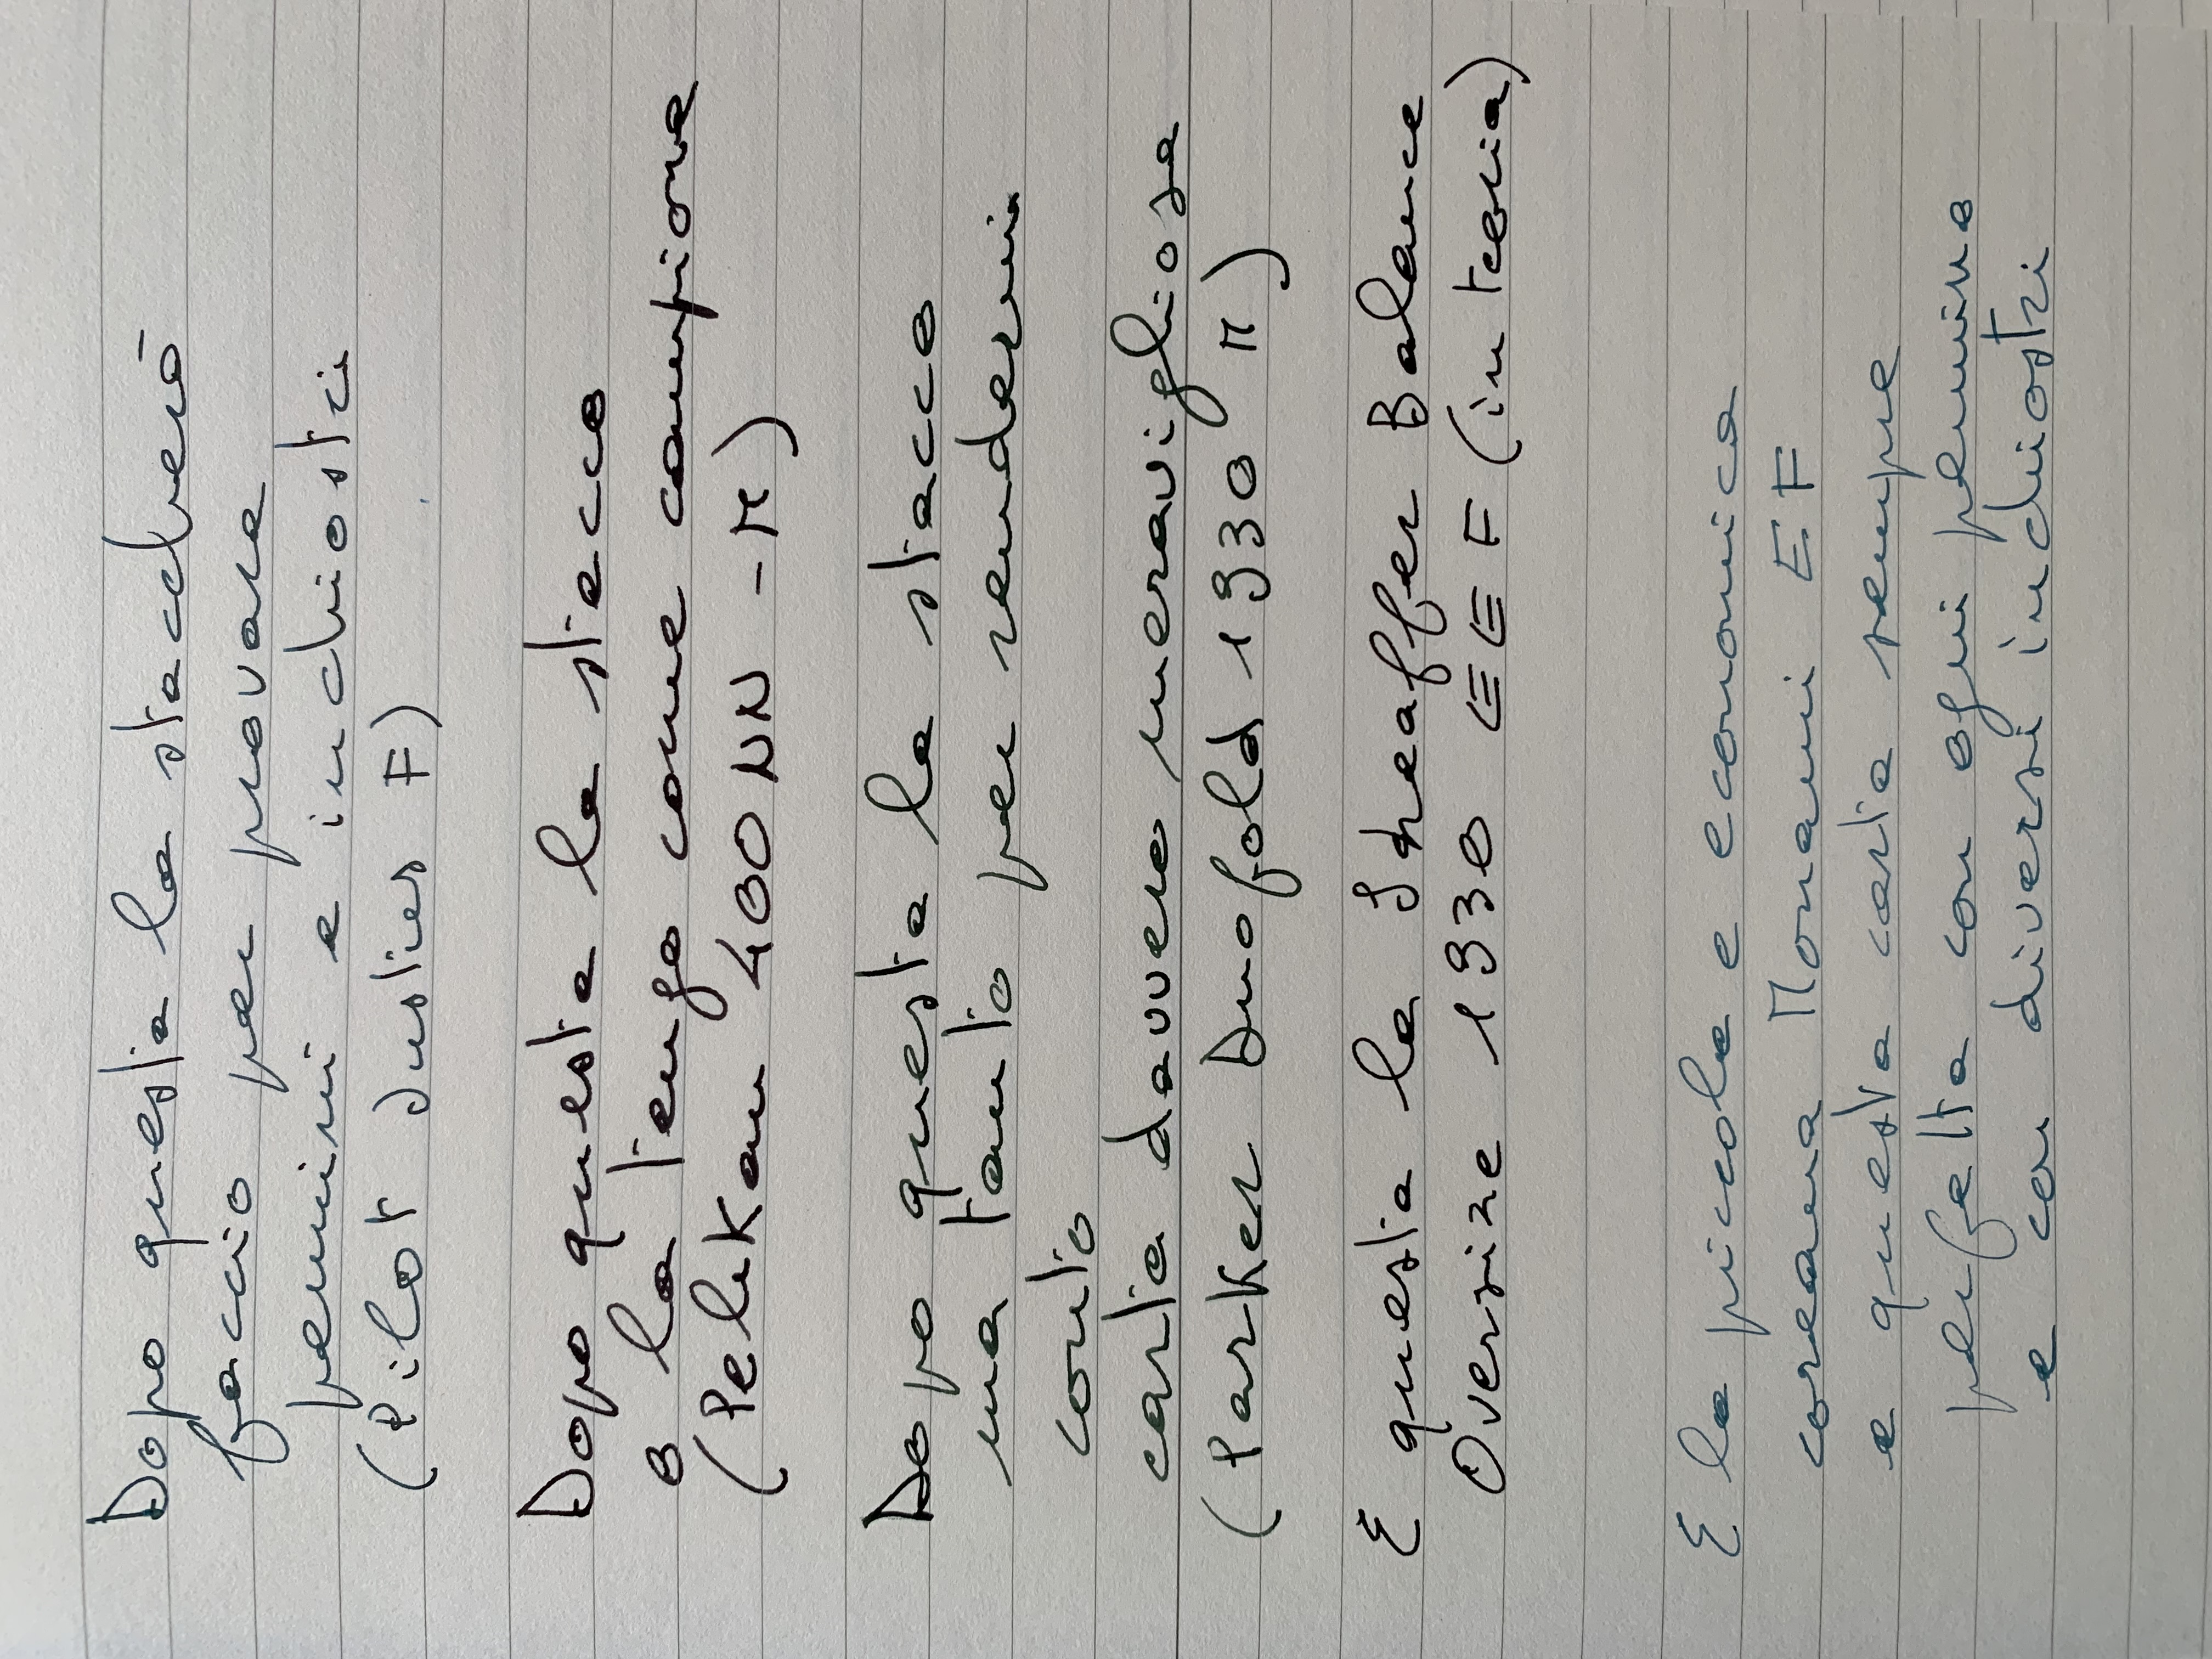 Dopo questa la staccherò
faccio per provare
pennini e inchiostri
(Pilot Justus F)
Dopo questa la stacco
o la tengo come campione
(Pelikan 400NN-M)
Dopo questa la stacco
ma tanto per rendermi
conto
carta davvero meravigliosa
(Parker Duofold 1930 M)
E questa la Sheaffer Balance
Oversize 1930 EEF (in teoria)
E la piccola e economica
coreana Monami EF
e questa carta sempre
perfetta con ogni pennino
e con diversi inchiostri